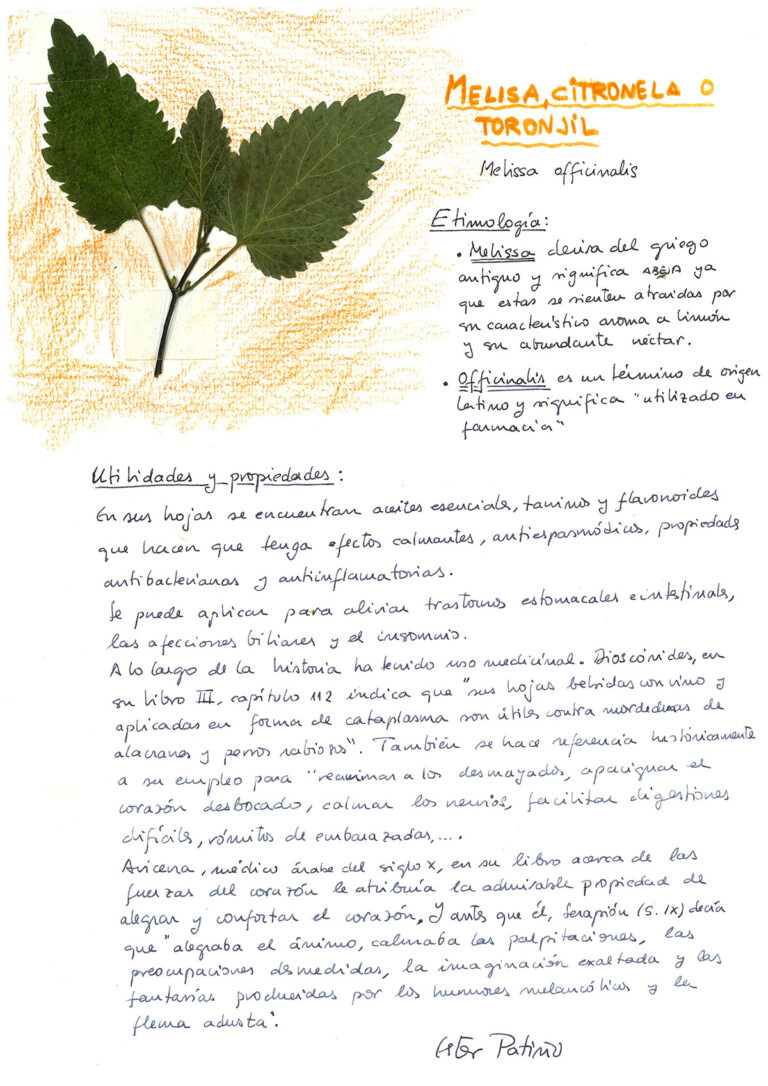 MELISA, CITRONELA O
TORONJIL
Melissa officinalis
Etimología:
• Melissa deriva del griego
antiguo y significa ABEJA ya
que estas se sienten atraidas por
su característico aroma a limón
y su abundante néctar.
• Officinalis es un término de origen
latino y significa "utilizado en
farmacia"
Utilidades y propiedades:
En sus hojas se encuentran aceites esenciales, taninos y flavonoides
que hacen que tenga efectos calmantes, antiespasmódicos, propiedades
antibacterianas y antiinflamatorias.
Se puede aplicar para aliviar trastornos estomacales e intestinales,
las afecciones biliares y el insomnio.
A lo largo de la historia ha tenido uso medicinal. Dioscórides, en
su libro III, capítulo 112 indica que "sus hojas bebidas con vino y
aplicadas en forma de cataplasma son útiles contra mordeduras de
alacranes y perros rabiosos". También se hace referencia históricamente
a su empleo para "reanimar a los desmayados, apaciguar el
corazón desbocado, calmar los nervios, facilitar digestiones
difíciles, vómitos de embarazadas,....
Avicena, médico árabe del siglo X, en su libro acerca de las
fuerzas del corazón le atribuía la admirable propiedad de
alegrar y confortar el corazón. Y antes que él, Serapión (S. IX) decía
que "alegraba el ánimo, calmaba las palpitaciones, las
preocupaciones desmedidas, la imaginación exaltada y las
fantasías producidas por los humores melancólicos y la
flema adusta".
Ester Patiño